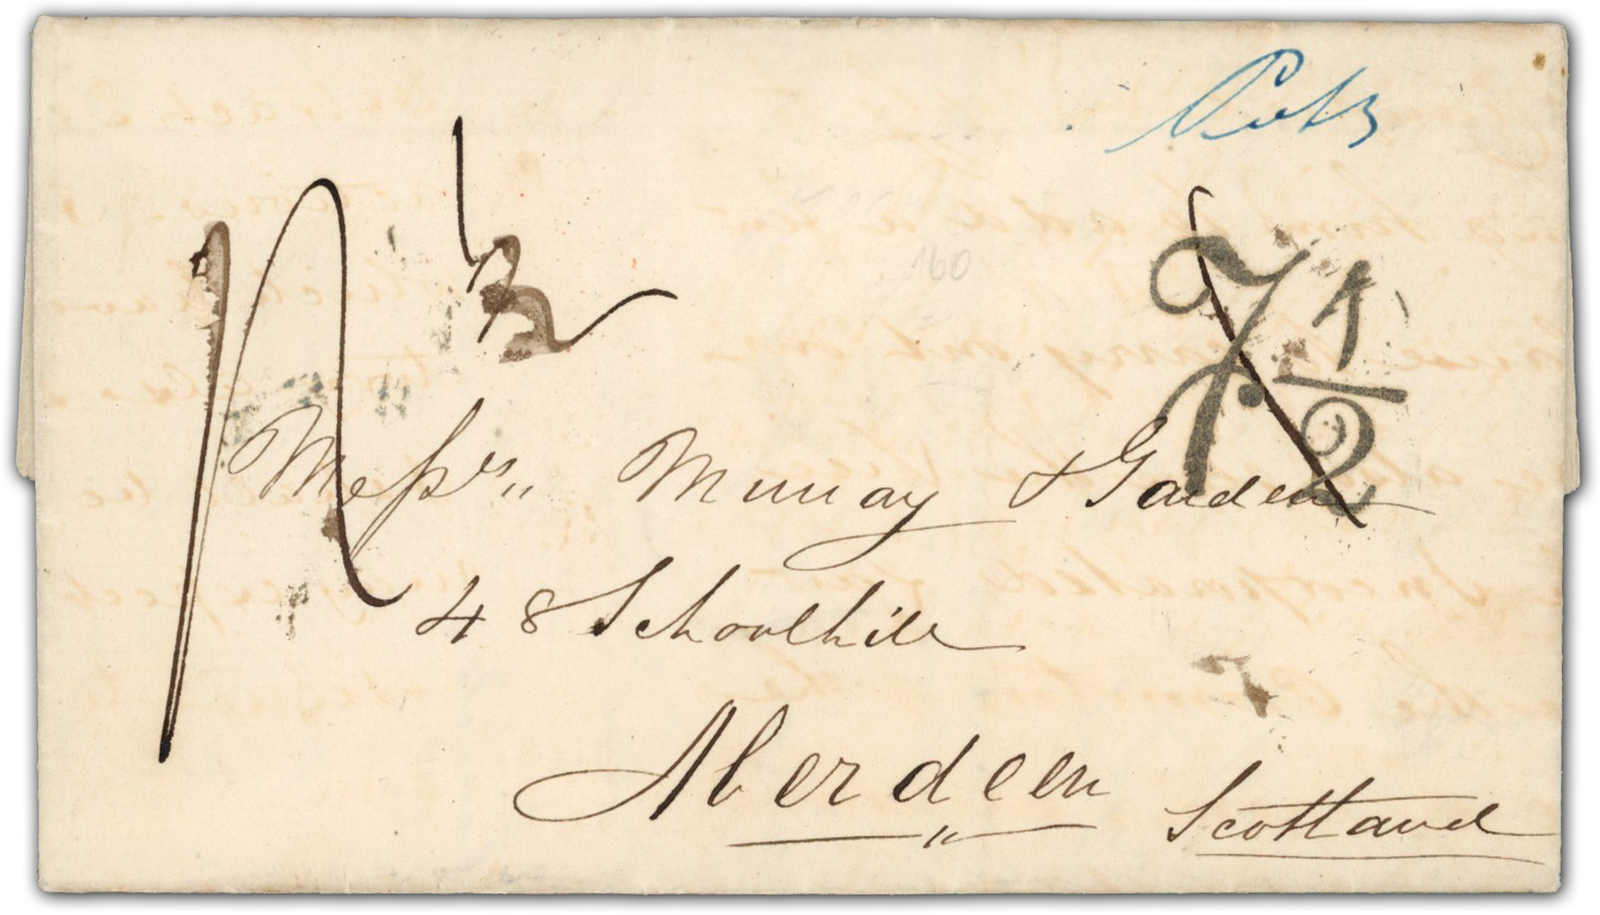 7 1/2
1/2
160
Messrs. Murray & Garden
48 Schoolhill
Aberdeen
Scotland